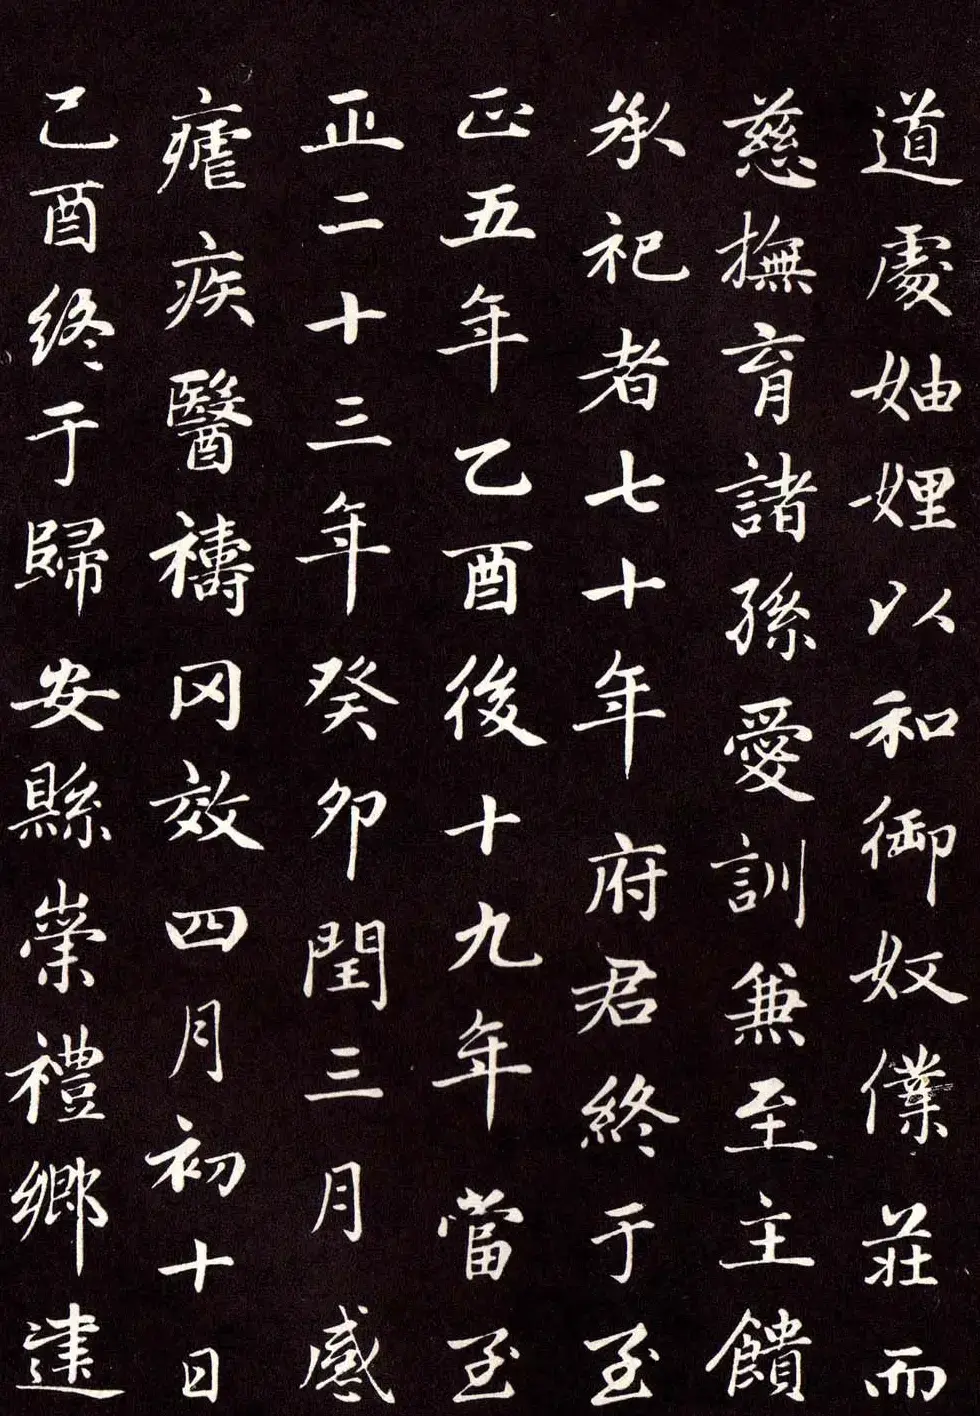 道處妯娌以和御奴僕莊而
慈撫育諸孫愛訓兼至主饋
承祀者七十年府君終于至
正五年乙酉後十九年當至
正二十三年癸卯閏三月感
瘧疾醫禱冈效四月初十日
己酉終于歸安縣崇禮鄉建